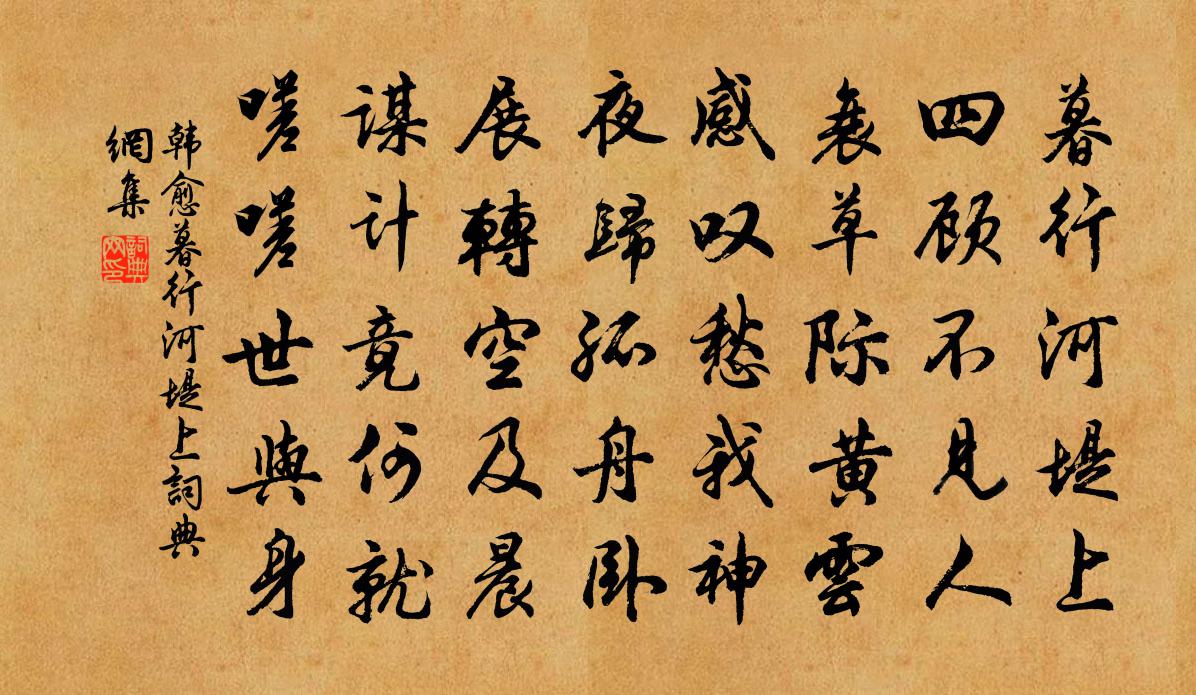 暮行河堤上
四顾不见人
衰草际黄雲
感叹愁我神
夜歸孤舟卧
展轉空及晨
謀计竟何就
嗟嗟世與身
韩愈暮行河堤上詞典
網集
詞典
网印